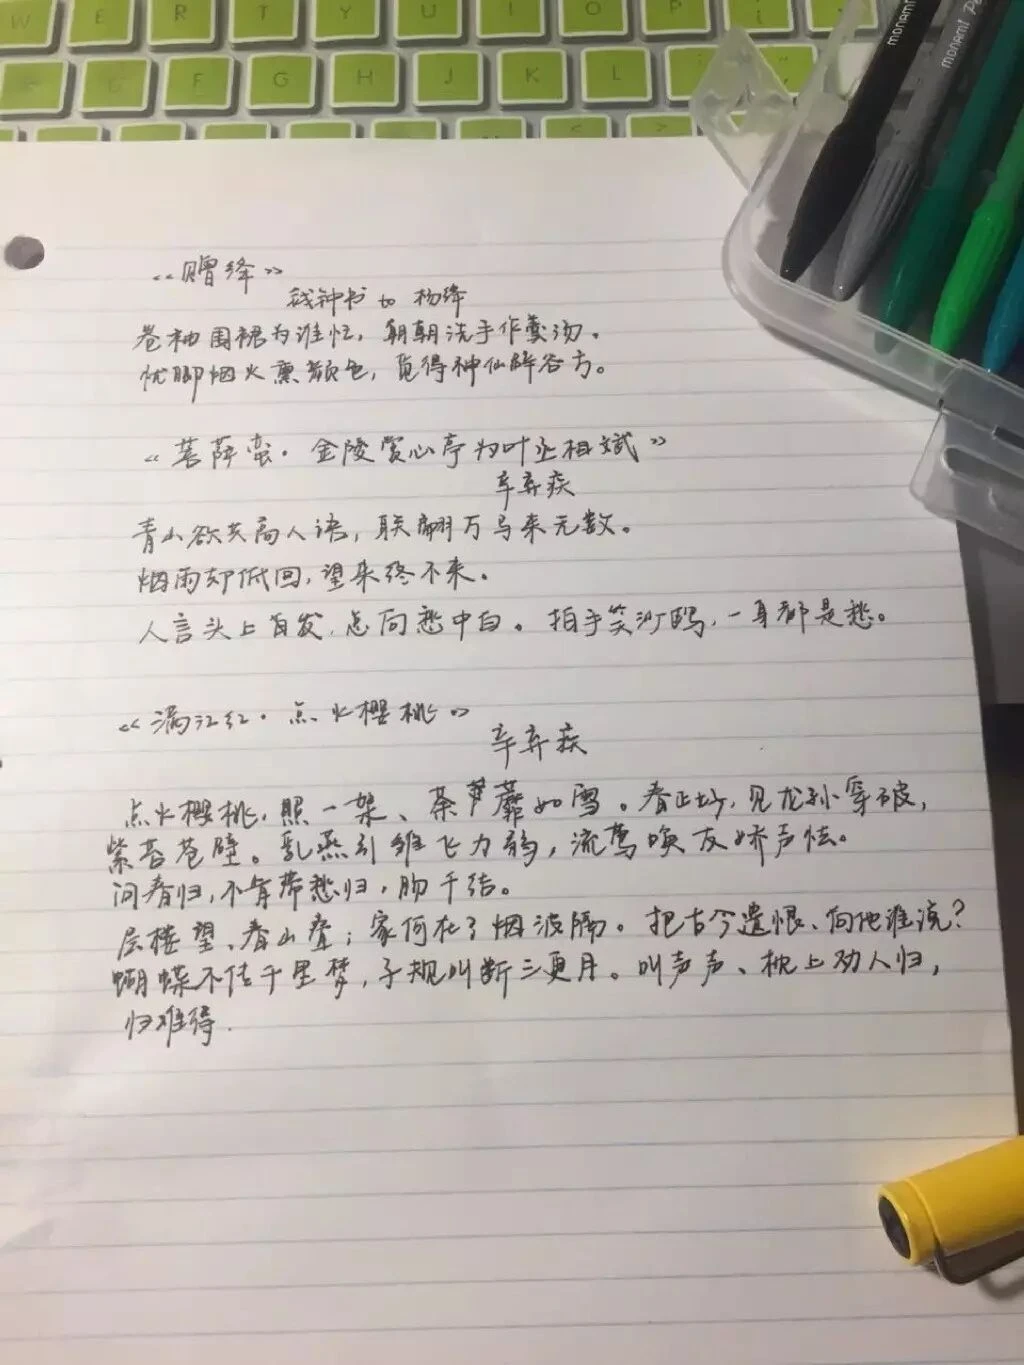 W E R T Y U I O P
F G H J K L
monami
monami
《赠绛》
钱钟书 to 杨绛
卷袖围裙为谁忙，朝朝洗手作羹汤。
忧卿烟火熏颜色，觅得神仙辟谷方。
《菩萨蛮·金陵赏心亭为叶丞相斌》
辛弃疾
青山欲共高人语，联翩万马来无数。
烟雨却低回，望来终不来。
人言头上首发，总向愁中白。拍手笑沙鸥，一身都是愁。
《满江红·点火樱桃》
辛弃疾
点火樱桃，照一架、荼蘼如雪。春正好，见龙孙穿破，
紫苔苍壁。乳燕引雏飞力弱，流莺唤友娇声怯。
问春归，不肯带愁归，肠千结。
层楼望、春山叠；家何在？烟波隔。把古今遗恨、向他谁说？
蝴蝶不传千里梦，子规叫断三更月。叫声声、枕上劝人归，
归难得.